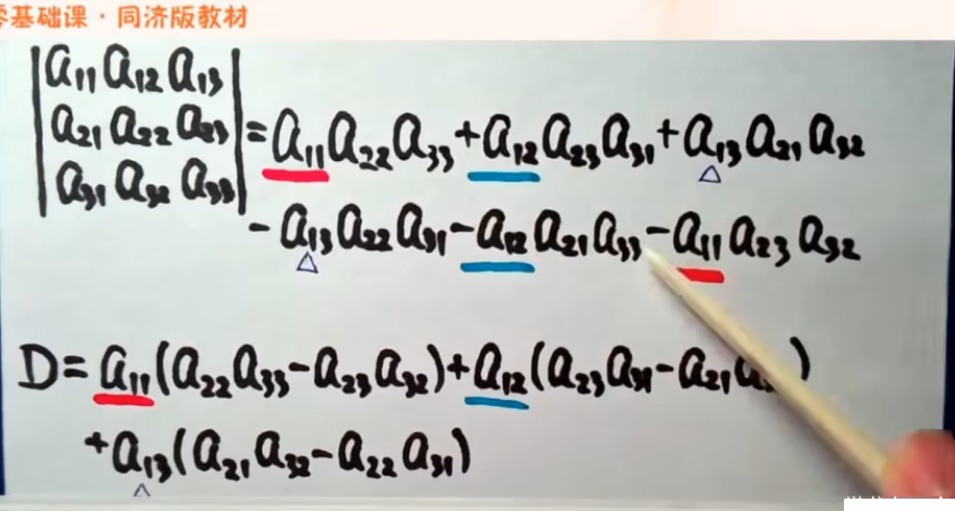 零基础课·同济版教材
|a₁₁ a₁₂ a₁₃|
|a₂₁ a₂₂ a₂₃| = a₁₁a₂₂a₃₃ + a₁₂a₂₃a₃₁ + a₁₃a₂₁a₃₂
|a₃₁ a₃₂ a₃₃|
- a₁₃a₂₂a₃₁ - a₁₂a₂₁a₃₃ - a₁₁a₂₃a₃₂
D = a₁₁(a₂₂a₃₃ - a₂₃a₃₂) + a₁₂(a₂₃a₃₁ - a₂₁a )
+ a₁₃(a₂₁a₃₂ - a₂₂a₃₁)